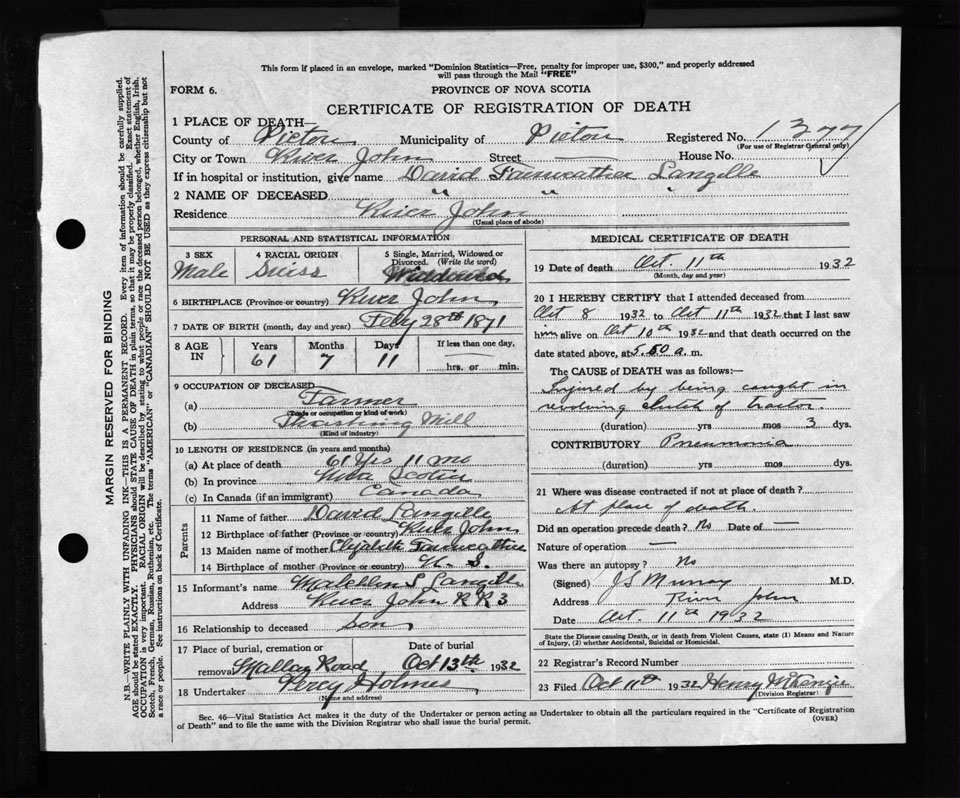 This form if placed in an envelope, marked "Dominion Statistics—Free, penalty for improper use, $300," and properly addressed
will pass through the Mail "FREE"
FORM 6.
PROVINCE OF NOVA SCOTIA
CERTIFICATE OF REGISTRATION OF DEATH
1 PLACE OF DEATH—
County of Pictou Municipality of Pictou Registered No. 1377
(For use of Registrar General only)
City or Town River John Street — House No.
If in hospital or institution, give name David Fairweather Langille
2 NAME OF DECEASED " " "
Residence River John
(Usual place of abode)
PERSONAL AND STATISTICAL INFORMATION
3 SEX Male
4 RACIAL ORIGIN Suiss
5 Single, Married, Widowed or
Divorced. (Write the word)
Widdowed
6 BIRTHPLACE (Province or country) River John
7 DATE OF BIRTH (month, day and year) Feby 28th 1871
8 AGE IN Years 61 Months 7 Days 11
If less than one day,
hrs. or min.
9 OCCUPATION OF DECEASED—
(a) Farmer
(Trade or occupation or kind of work)
(b) Thrashing Mill
(Kind of industry)
10 LENGTH OF RESIDENCE (in years and months)
(a) At place of death 61 Yrs 11 mo
(b) In province Nova Scotia
(c) In Canada (if an immigrant) Canada
Parents
11 Name of father David Langille
12 Birthplace of father (Province or country) River John
13 Maiden name of mother Elizabeth Fairweather
14 Birthplace of mother (Province or country) N. S.
15 Informant's name L Langille
Address River John R R 3
16 Relationship to deceased Son
17 Place of burial, cremation or Date of burial
removal Road Oct 13th 1932
18 Undertaker Percy Holmes
(Name and address)
MEDICAL CERTIFICATE OF DEATH
19 Date of death Oct. 11th 1932
(Month, day and year)
20 I HEREBY CERTIFY that I attended deceased from
Oct 8 1932 to Oct 11th 1932 that I last saw
him alive on Oct 10th 1932 and that death occurred on
date stated above, at 5.50 a. m.
The CAUSE of DEATH was as follows:—
Injured by being caught in
of tractor.
(duration) yrs mos 3 dys.
CONTRIBUTORY Pneumonia
(duration) yrs mos dys.
21 Where was disease contracted if not at place of death?
At place of death.
Did an operation precede death? No Date of —
Nature of operation —
Was there an autopsy? No
(Signed) J S Murray M.D.
Address River John
Date Oct. 11th 1932
State the Disease causing Death, or in death from Violent Causes, state (1) Means and Nature
of Injury, (2) whether Accidental, Suicidal or Homicidal.
22 Registrar's Record Number
23 Filed Oct 11th 1932 Henry McKenzie
(Division Registrar)
Sec. 46—Vital Statistics Act makes it the duty of the Undertaker or person acting as Undertaker to obtain all the particulars required in the "Certificate of Registration
of Death" and to file the same with the Division Registrar who shall issue the burial permit.
(OVER)
MARGIN RESERVED FOR BINDING
N.B.—WRITE PLAINLY WITH UNFADING INK—THIS IS A PERMANENT RECORD. Every item of information should be carefully supplied.
AGE should be stated EXACTLY. PHYSICIANS should STATE CAUSE OF DEATH in plain terms, so that it may be properly classified. Exact statement of
OCCUPATION is very important. RACIAL ORIGIN will be described by stating to what people or race the deceased person belonged, whether English, Irish,
Scotch, French, German, Russian, Ruthenian, etc. The terms "AMERICAN" or "CANADIAN" SHOULD NOT BE USED as they express citizenship but not
a race or people. See instructions on back of Certificate.